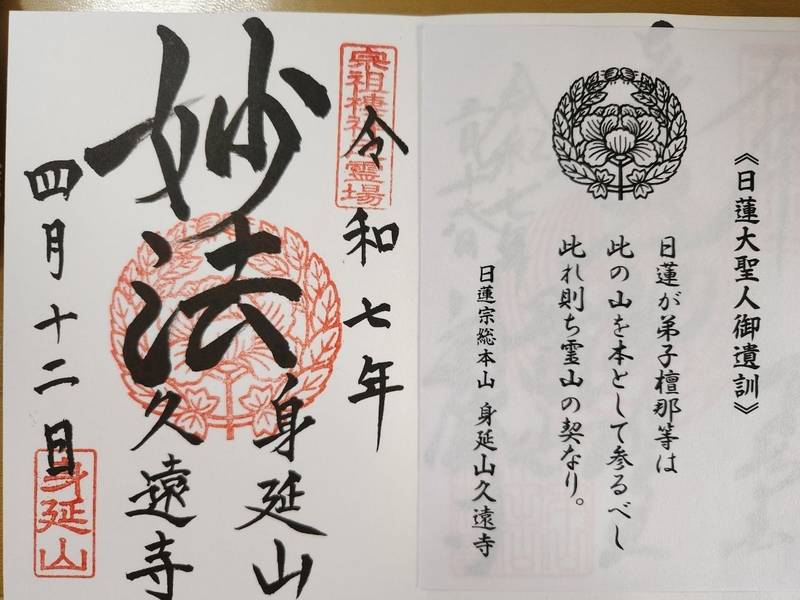 《日蓮大聖人御遺訓》
日蓮が弟子檀那等は
此の山を本として参るべし
此れ則ち霊山の契なり。
日蓮宗総本山 身延山久遠寺
宗祖棲神霊場
令和七年
身延山
妙法
久遠寺
四月十二日
身延山